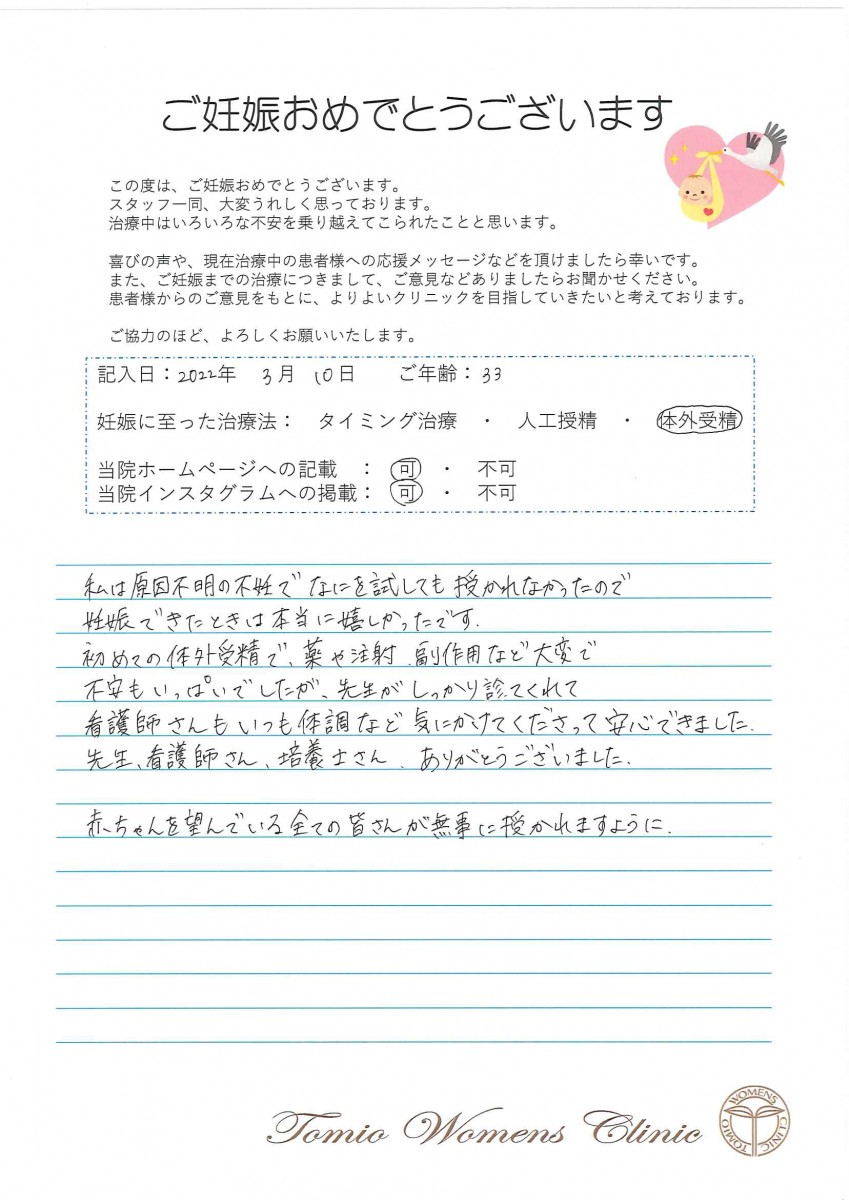 ご妊娠おめでとうございます
この度は、ご妊娠おめでとうございます。
スタッフ一同、大変うれしく思っております。
治療中はいろいろな不安を乗り越えてこられたことと思います。
喜びの声や、現在治療中の患者様への応援メッセージなどを頂けましたら幸いです。
また、ご妊娠までの治療につきまして、ご意見などありましたらお聞かせください。
患者様からのご意見をもとに、よりよいクリニックを目指していきたいと考えております。
ご協力のほど、よろしくお願いいたします。
記入日：2022年 3月 10日 ご年齢：33
妊娠に至った治療法： タイミング治療 ・ 人工授精 ・ 体外受精
当院ホームページへの記載 ： 可 ・ 不可
当院インスタグラムへの掲載： 可 ・ 不可
私は原因不明の不妊でなにを試しても授かれなかったので
妊娠できたときは本当に嬉しかったです.
初めての体外受精で、薬や注射、副作用など大変で
不安もいっぱいでしたが、先生がしっかり診てくれて
看護師さんもいつも体調など気にかけてくださって安心できました.
先生、看護師さん、培養士さん、ありがとうございました.
赤ちゃんを望んでいる全ての皆さんが無事に授かれますように.
Tomio Womens Clinic
TOMIO WOMENS CLINIC